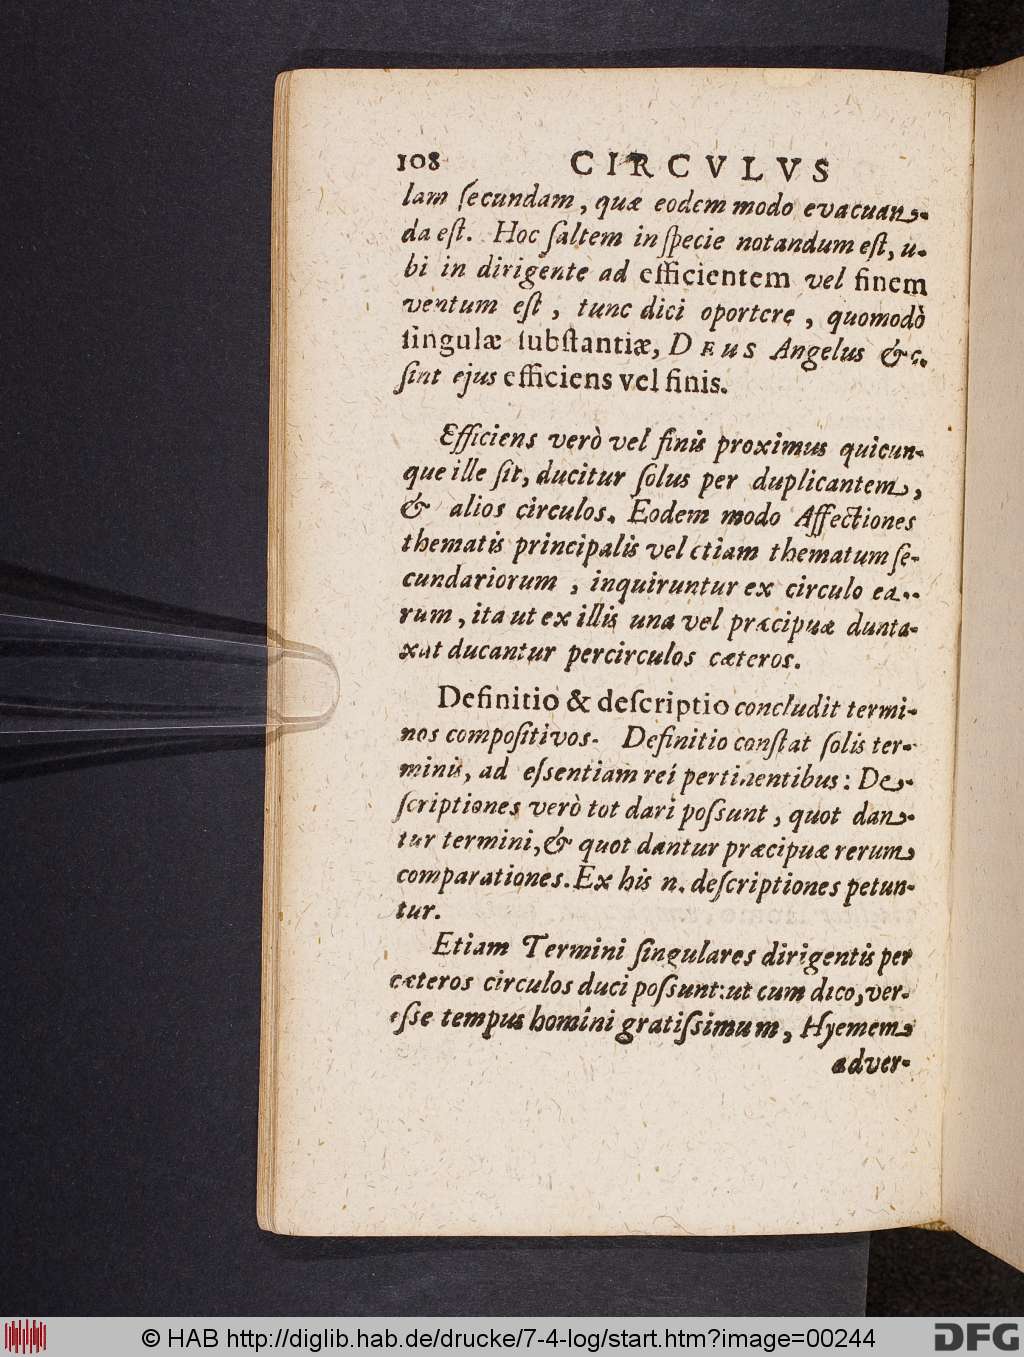 108 CIRCVLVS
lam ſecundam, quæ eodem modo evacuan-
da eſt. Hoc ſaltem in ſpecie notandum eſt, u-
bi in dirigente ad efficientem vel finem
ventum eſt, tunc dici oportere, quomodò
ſingulæ ſubſtantiæ, DEUS Angelus &c.
ſint ejus efficiens vel finis.
Efficiens verò vel finis proximus quicun-
que ille ſit, ducitur ſolus per duplicantem,
& alios circulos. Eodem modo Affectiones
thematis principalis vel etiam thematum ſe-
cundariorum, inquiruntur ex circulo ea-
rum, ita ut ex illis una vel præcipuæ dunta-
xat ducantur per circulos cæteros.
Definitio & deſcriptio concludit termi-
nos compoſitivos. Definitio conſtat ſolis ter-
minis, ad eſsentiam rei pertinentibus: De-
ſcriptiones verò tot dari poſsunt, quot dan-
tur termini, & quot dantur præcipuæ rerum
comparationes. Ex his n. deſcriptiones petun-
tur.
Etiam Termini ſingulares dirigentis per
cæteros circulos duci poſsunt: ut cum dico, ver-
eſse tempus homini gratiſsimum, Hyemem
adver-
© HAB http://diglib.hab.de/drucke/7-4-log/start.htm?image=00244
DFG